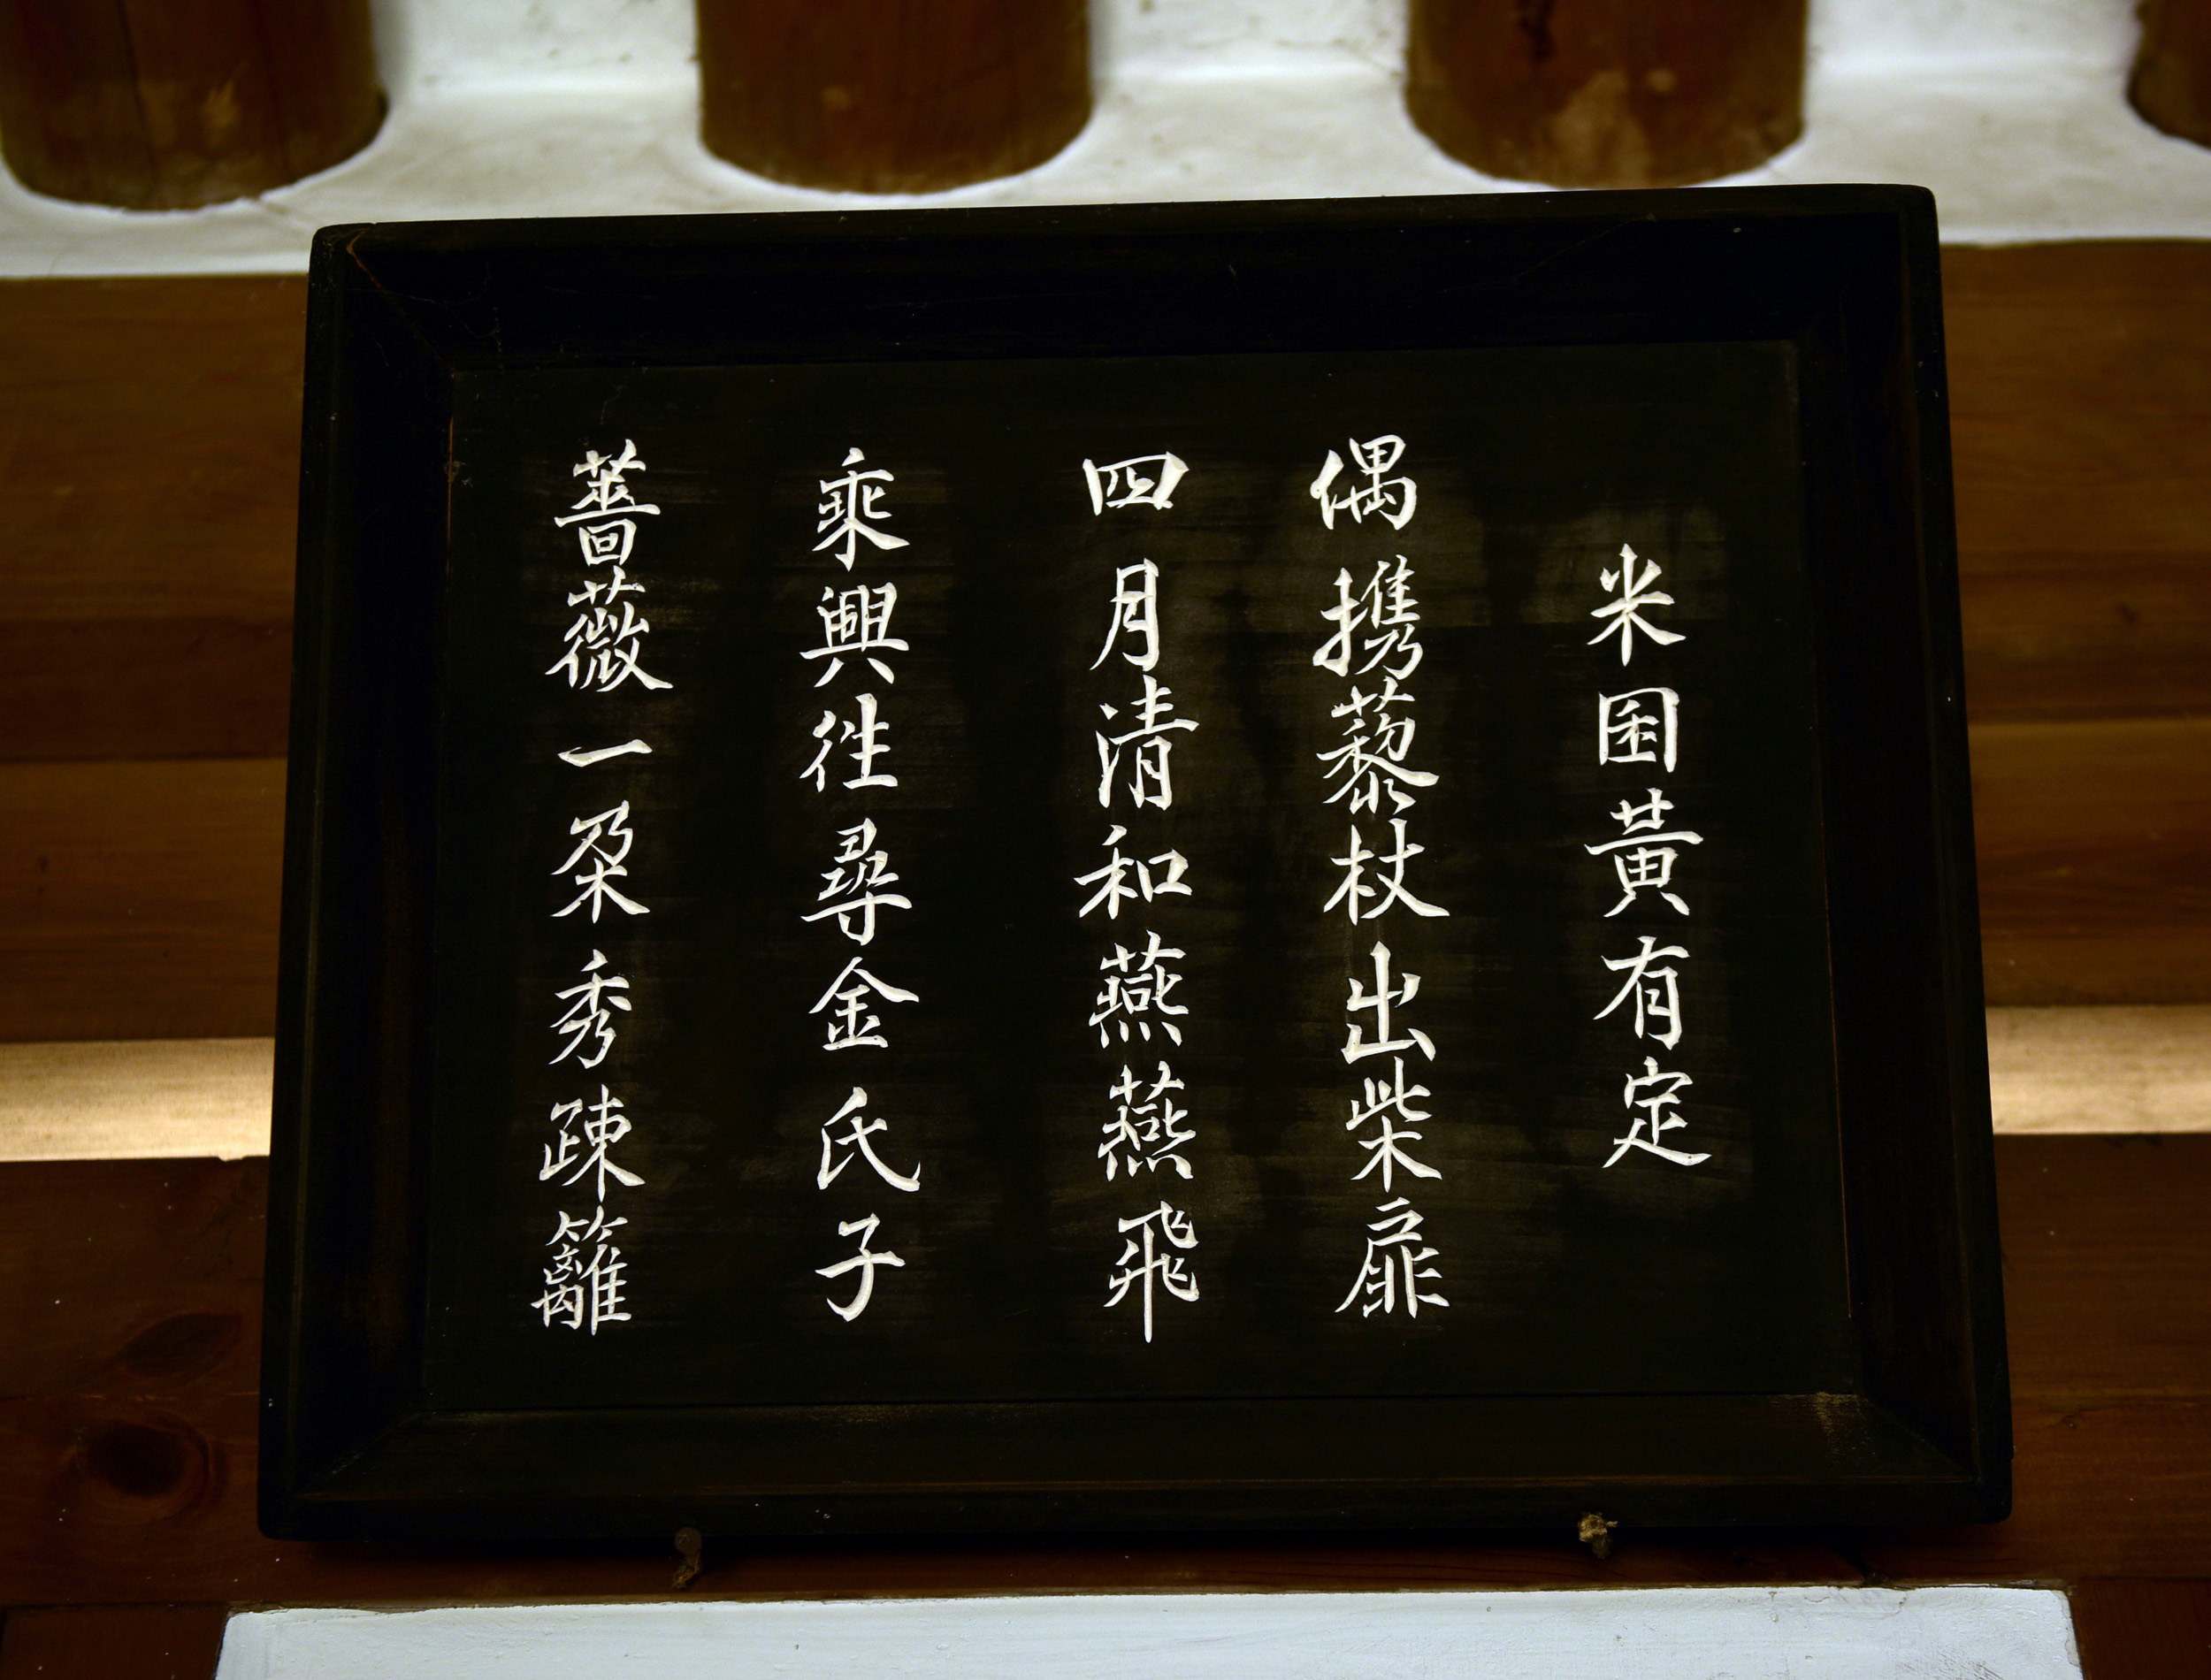 米囷黃有定
偶携藜杖出柴扉
四月清和燕燕飛
乘興徃尋金氏子
薔薇一朶秀疎籬